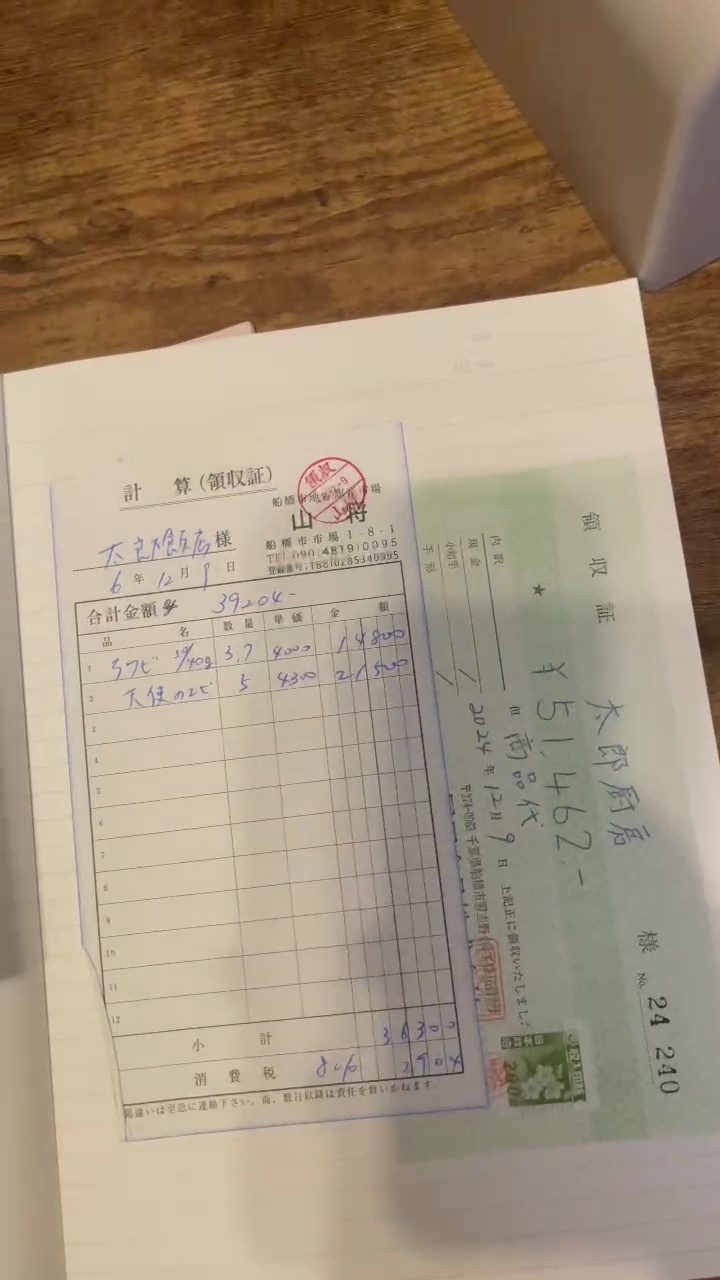 計 算(領収証)
領収
船橋市地方卸売市場
山 将
太郎飯店 様
船橋市市場1-8-1
TEL 090(4819)0095
6 年 12 月 9 日
登録番号:T8810285340995
合計金額 39204-
品 名 数量 単価 金 額
1 3.7 4000 14800
2 天使のエビ 5 4300 21500
3
4
5
6
7
8
9
10
11
12
小 計 36300
消 費 税 8% 2904
間違いは至急に連絡下さい。尚、数日以降は責任を負いかねます。
領 収 証
太郎厨房 様
No. 24 240
★ ¥51,462.-
但 商品代
2024 年 12 月 9 日 上記正に領収いたしました
内 訳
現 金
小切手
手 形
千葉県船橋市習志野
収入印紙
日本政府
200